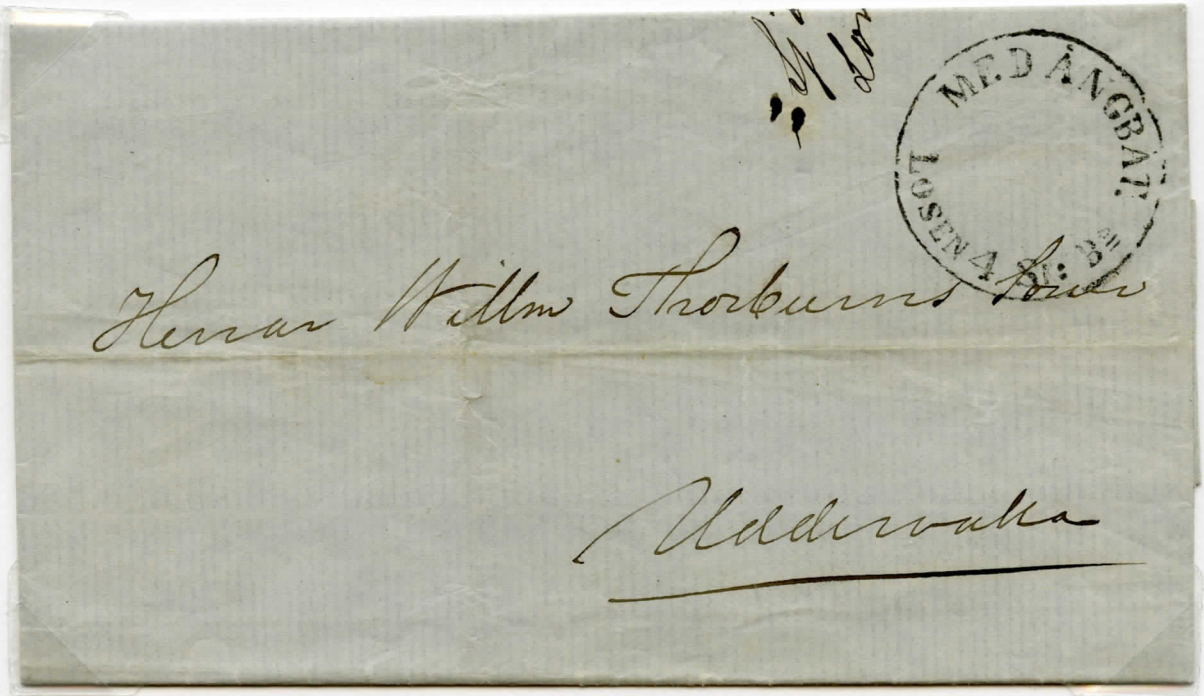 MED ÅNGBÅT.
LOSEN 4 Sk: Bco
Herrar Willm Thorburns Söner
Uddevalla